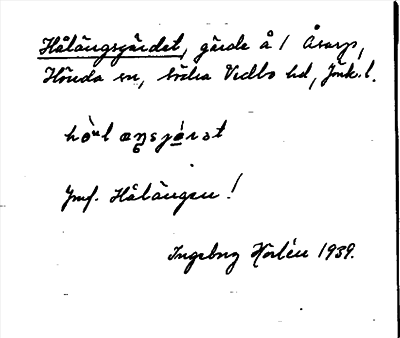 Hålängsgärdet, gärde å 1 Åsarp,
Hånda sn, södra Vedbo hd, Jönk. l.
hò̇ᵘl æŋsjá̱rət
Jmf. Hålängen!
Ingebng Norlén 1939.